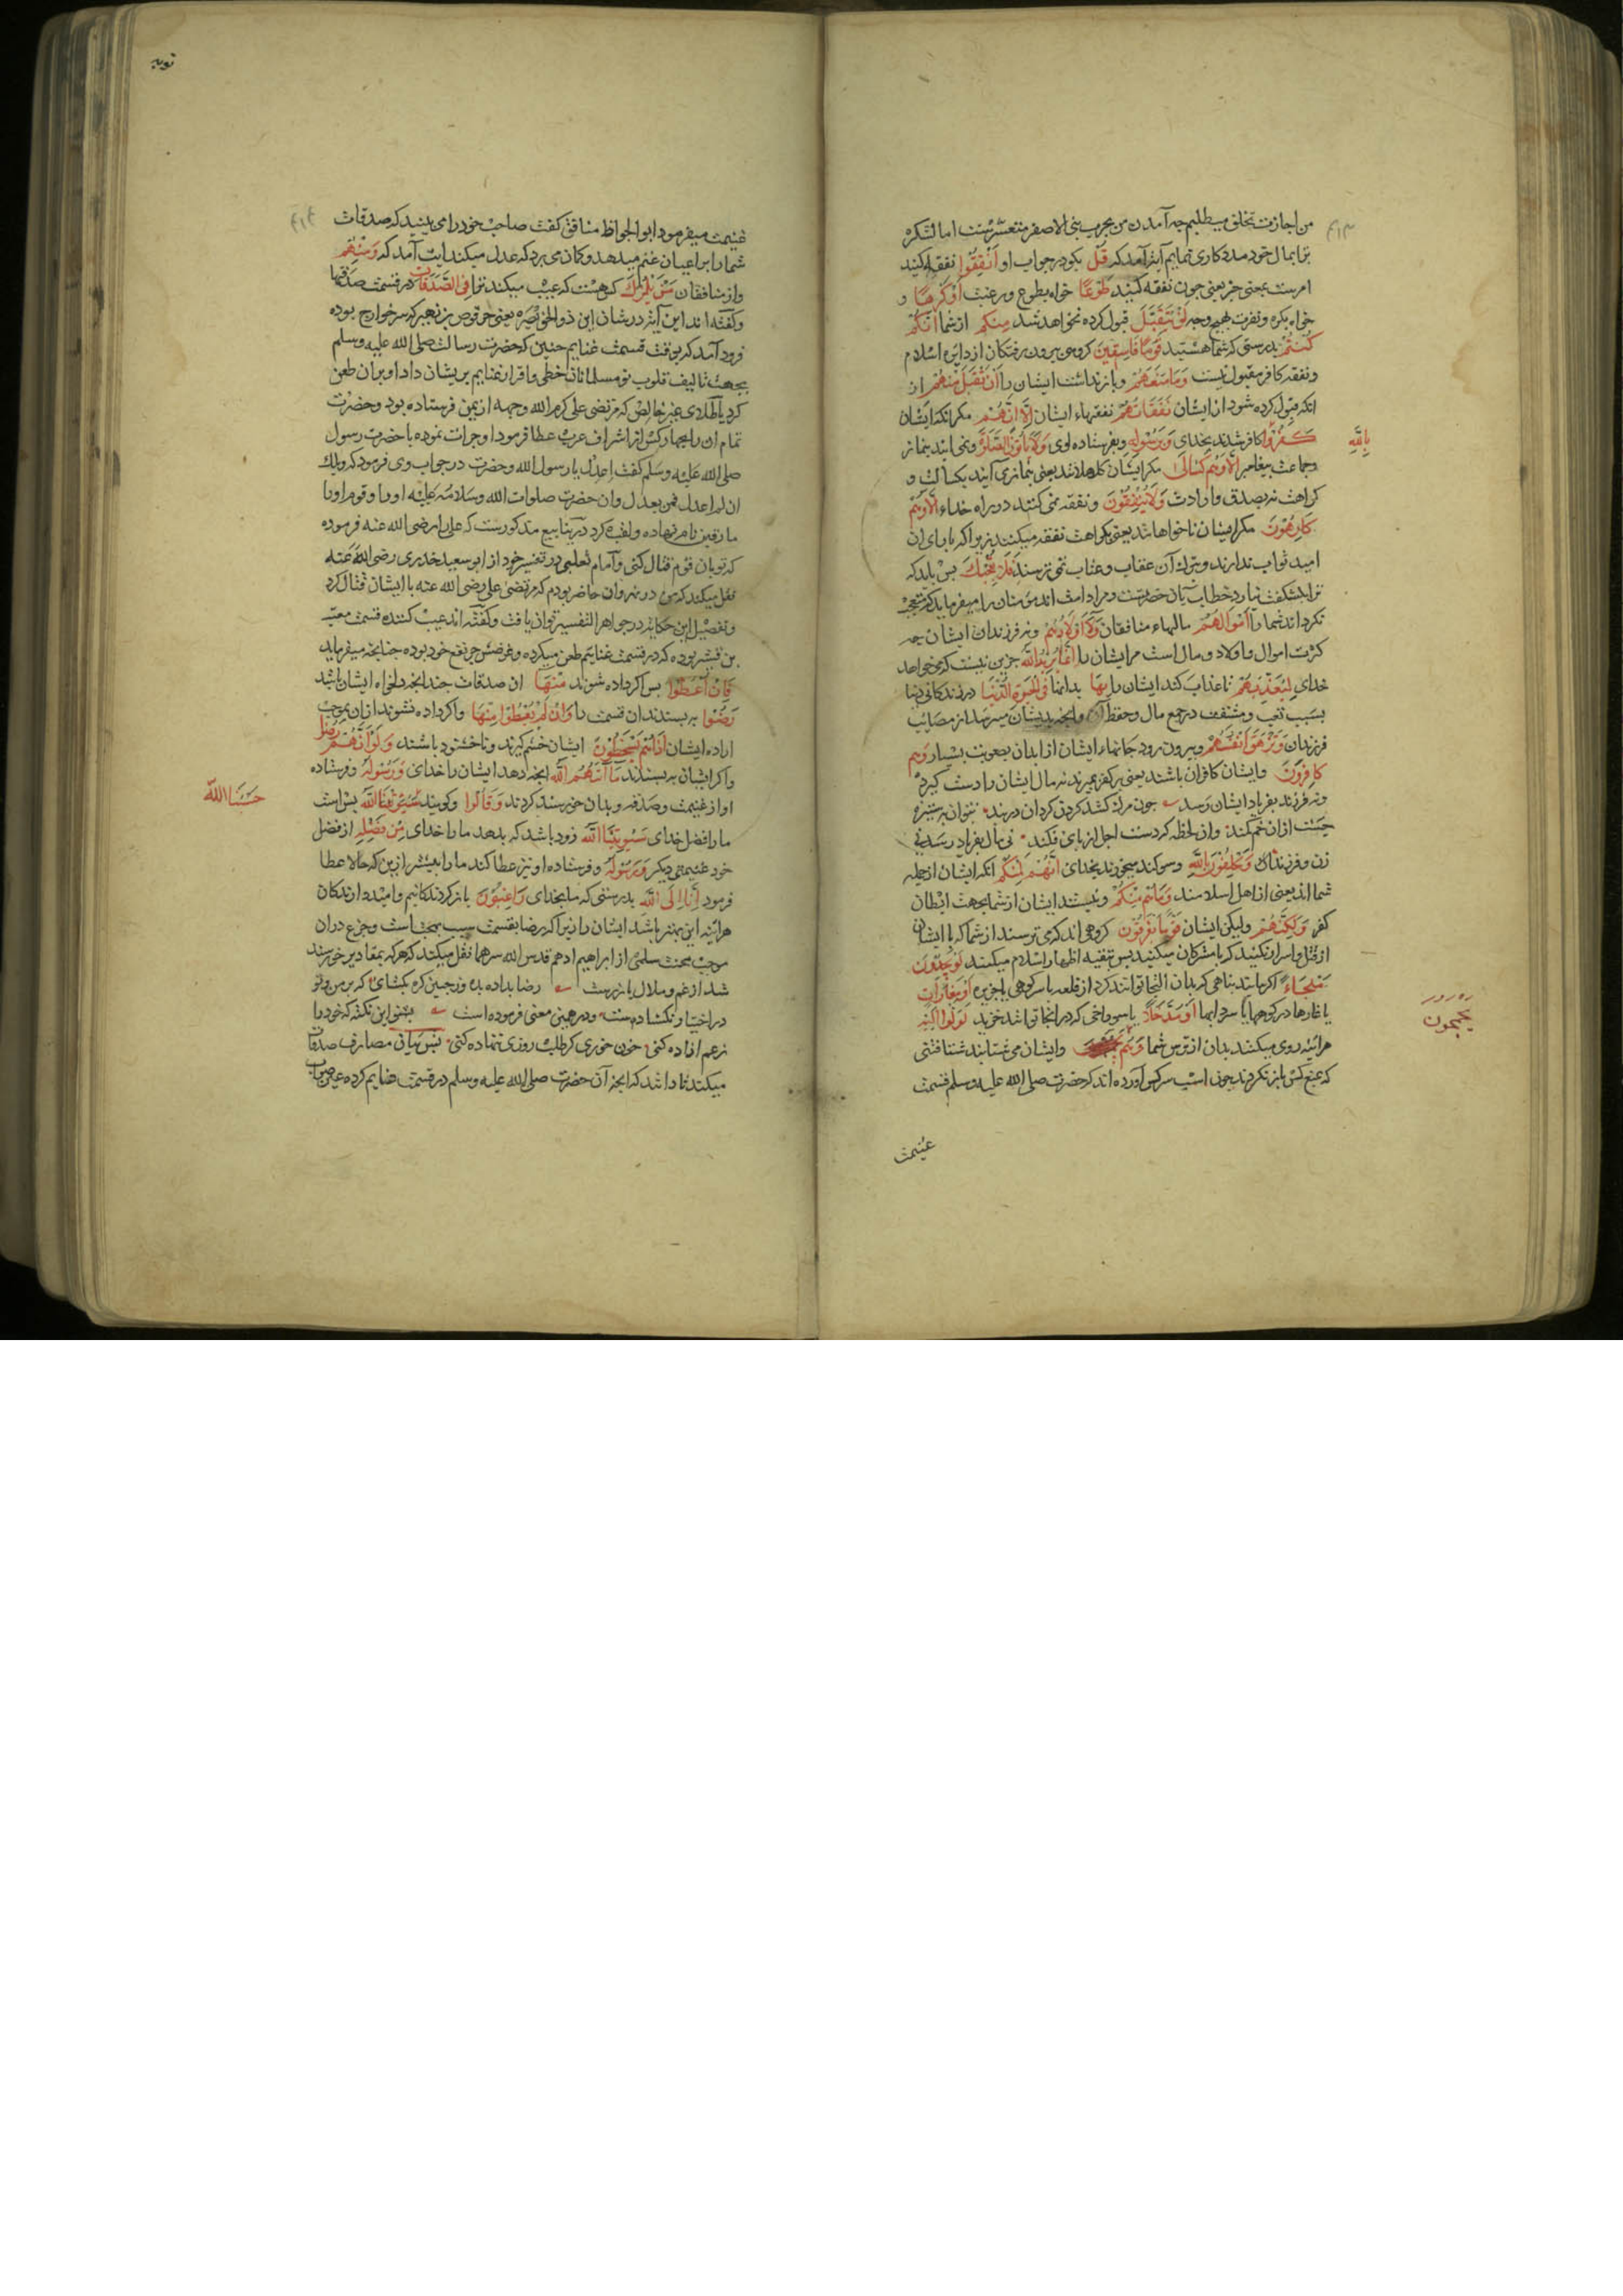 من اجازت تخلف میطلبم چه آمدن من بحرب بنی الاصفر متعسرست اما لشکر
ترا بمال خود مددکاری نمایم آیة آمد که قُلْ بکو در جواب او اَنْفِقُوا نفقه کنید
امرست بمعنی خبر یعنی چون نفقه کنید طَوْعًا خواه بطوع و رغبت اَوْ کَرْهًا و
خواه بکره و نفرت بهیچ وجه لَنْ یُتَقَبَّلَ قبول کرده نخواهد شد مِنْکُم از شما اِنَّکُمْ
کُنْتُمْ بدرستی که شما هستید قَوْمًا فَاسِقِینَ کروهی بیرون رفتکان از دایره اسلام
و نفقه کافر مقبول نیست وَمَا مَنَعَهُمْ و باز نداشت ایشان را اَنْ تُقْبَلَ مِنْهُمْ از
انکه قبول کرده شود از ایشان نَفَقَاتُهُمْ نفقهاء ایشان اِلَّا اَنَّهُمْ مکر انکه ایشان
کَفَرُوا کافر شدند بخدای وَبِرَسُولِهِ و بفرستاده اوی وَلَا یَأْتُونَ الصَّلٰوةَ و نمی آیند بنماز
بِاللّٰهِ
و جماعت پیغامبر اِلَّا وَهُمْ کُسَالٰی مکر ایشان کاهلانند یعنی بنماز می آیند بکسالت و
کراهت نه بصدق و ارادت وَلَا یُنْفِقُونَ و نفقه نمی کنند در راه خداء اِلَّا وَهُمْ
کَارِهُونَ مکر ایشان ناخواهانند یعنی بکراهت نفقه میکنند زیرا که بابای ان
امید ثواب ندارند و بترک آن عقاب و عتاب نمی ترسند فَلَا تُعْجِبْکَ پس باید که
ترا بشکفت نیارد خطاب بآن حضرتست و مراد امت اند مؤمنان را میفرماید که متعجب
نکرداند شما را اَمْوَالُهُمْ مالهاء منافقان وَلَا اَوْلَادُهُمْ و نه فرزندان ایشان چه
کثرت اموال و اولاد وبال است مر ایشان را اِنَّمَا یُرِیدُ اللّٰهُ جزین نیست که می خواهد
خدای لِیُعَذِّبَهُمْ تا عذاب کند ایشان را بِهَا بدانها فِی الْحَیٰوةِ الدُّنْیَا در زندکانی دنیا
بسبب تعب و مشقت در جمع مال و حفظ آن و انچه بدیشان میرسد از مصایب
فرزندان وَتَزْهَقَ اَنْفُسُهُمْ و بیرون رود جانهاء ایشان از ابدان بصعوبت بسیار وَهُمْ
کَافِرُونَ و ایشان کافران باشند یعنی بر کفر بمیرند نه مال ایشان را دست کیرد
و نه فرزند بفریاد ایشان رسد چون مرک کشد کردن کردان در بند نتوان به ستیزه
جست ازان خم کمند وان لحظه که دست اجل از پای فکند نی مال بفریاد رسد نی
زن و فرزند وَیَحْلِفُونَ بِاللّٰهِ و سوکند میخورند بخدای اِنَّهُمْ لَمِنْکُمْ انکه ایشان از جمله
شما اند یعنی از اهل اسلامند وَمَا هُمْ مِنْکُمْ و نیستند ایشان از شما بجهت ابطان
کفر وَلٰکِنَّهُمْ و لیکن ایشان قَوْمٌ یَفْرَقُونَ کروهی اند که می ترسند از شما که با ایشان
از قتل و اسر آن کنید که با مشرکان میکنید پس بتقیه اظهار اسلام میکنند لَوْ یَجِدُونَ
مَلْجَاءً اکر یابند پناهی که بدان التجا توانند کرد از قلعه یا سر کوهی یا جزیره اَوْ مَغَارَاتٍ
یا غارها در کوهها یا سردابها اَوْ مُدَّخَلًا یا سوراخی که در انجا توانند خزید لَوَلَّوْا اِلَیْهِ
هر آینه روی میکنند بدان از ترس شما وَهُمْ و ایشان می شتابند شتافتنی
یَجْمَحُونَ
که بمنع کس باز نکردند چون اسب سرکش آورده اند که حضرت صلی الله علیه وسلم قسمت
غنیمت
توبه
غنیمت میفرمود ابو الجواظ منافق کفت صاحب خود را می بینید که صدقات
شما را براعیان غنم میدهد و کان می برد که عدل میکند ایت آمد که وَمِنْهُمْ
و از منافقان مَنْ یَلْمِزُکَ کسی هست که عیب میکند ترا فِی الصَّدَقَاتِ در قسمت صدقها
و کفته اند این آیة در شان ابن ذو الخویصره یعنی حرقوص بن زهیر که سر خوارج بوده
فرود آمد که بوقت قسمت غنایم حنین که حضرت رسالت صلی الله علیه وسلم
بجهت تالیف قلوب نو مسلمانان خطی وافر از غنایم بریشان داد او بران طعن
کرد یا طلای غیر خالص که مرتضی علی کرم الله وجهه از یمن فرستاده بود و حضرت
تمام ان را بچهار کس از اشراف عرب عطا فرمود او جرات نموده با حضرت رسول
صلی الله علیه وسلم کفت اعدل یا رسول الله و حضرت در جواب وی فرمود که ویلک
ان لم اعدل فمن یعدل وان حضرت صلوات الله وسلامه علیه او را و قوم او را
مارقین نام نهاده و لقب کرد در ینابیع مذکورست که علی را رضی الله عنه فرموده
که تو با ان قوم قتال کنی و امام ثعلبی در تفسیر خود از ابو سعید خدری رضی الله عنه
نقل میکند که من در نهروان حاضر بودم که مرتضی علی رضی الله عنه با ایشان قتال کرد
و تفصیل این حکایة در جواهر التفسیر توان یافت و کفته اند عیب کننده قسمت معتب
بن قشیر بوده که در قسمت غنایم طعن میکرده و غرضش جر نفع خود بوده چنانچه میفرماید
فَاِنْ اُعْطُوا پس اکر داده شوند مِنْهَا ان صدقات چندانچه دلخواه ایشان باشد
رَضُوا بپسندند ان قسمت را وَاِنْ لَمْ یُعْطَوْا مِنْهَا و اکر داده نشوند ازان بموجب
اراده ایشان اِذَا هُمْ یَسْخَطُونَ ایشان خشم کیرند و ناخشنود باشند وَلَوْ اَنَّهُمْ رَضُوا
و اکر ایشان بپسندند مَا اٰتٰیهُمُ اللّٰهُ انچه دهد ایشان را خدای وَرَسُولُهُ و فرستاده
او از غنیمت و صدقه و بدان خرسند کردند وَقَالُوا و کویند بس است
حَسْبُنَا اللّٰه
ما را فضل خدای سَیُؤْتِینَا اللّٰهُ زود باشد که بدهد ما را خدای مِنْ فَضْلِهِ از فضل
خود غنیمتی دیکر وَرَسُولُهُ و فرستاده او نیز عطا کند ما را بیشتر ازین که حالا عطا
فرمود اِنَّا اِلَی اللّٰهِ بدرستی که ما بخدای رَاغِبُونَ باز کردندکانیم و امیدوارندکان
هر آینه این بهتر باشد ایشان را زیرا که رضا بقسمت سبب بهجت است و جزع دران
موجب محنت سلمی از ابراهیم ادهم قدس الله سرهما نقل میکند که هر که بمقادیر خرسند
شد از غم و ملال باز رست رضا بداده بده وز جبین کره بکشای که بر من و تو
در اختیار نکشادست و در همین معنی فرموده است بشنو این نکته که خود را
زغم ازاده کنی خون خوری کر طلب روزی ننهاده کنی پس بیان مصارف صدقات
میکند تا دانند که انچه آن حضرت صلی الله علیه وسلم در قسمت غنایم کرده عین صواب